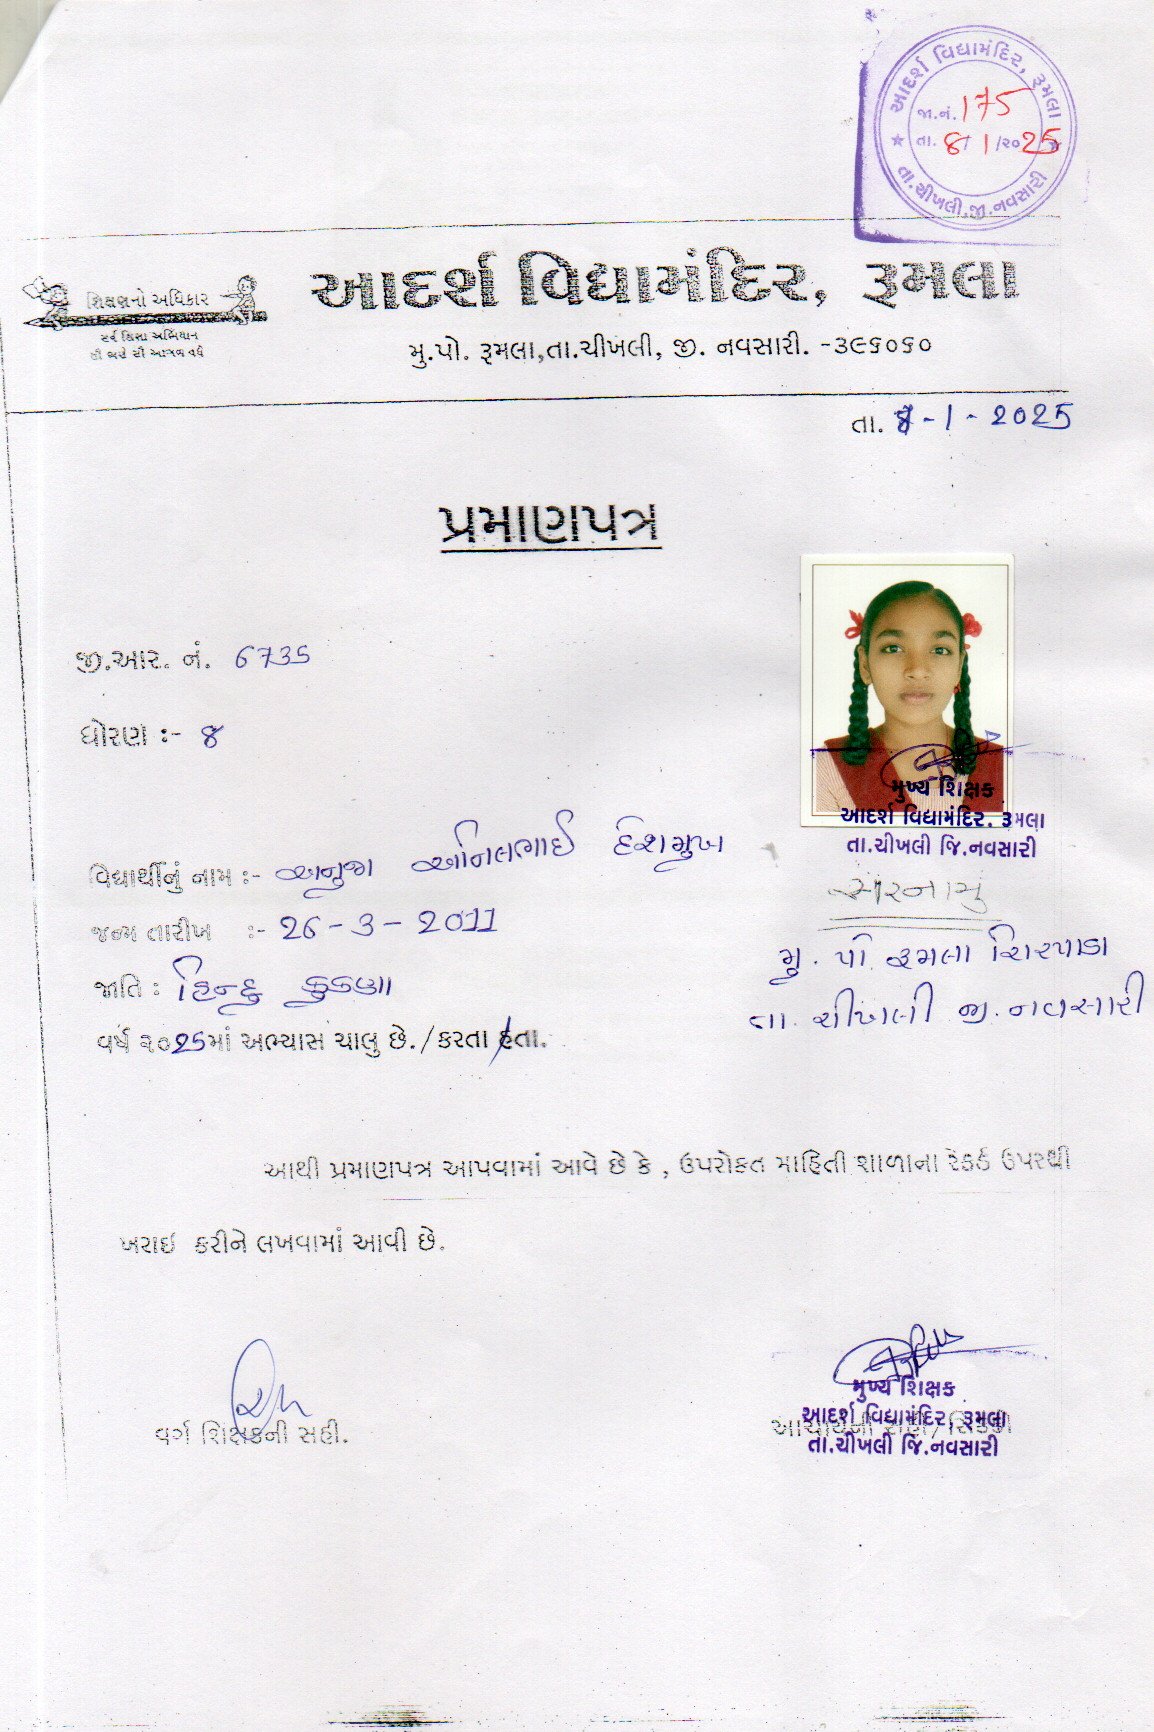 આદર્શ વિદ્યામંદિર, રૂમલા
જા.નં. 175
તા. 8/1/૨૦25
તા.ચીખલી,જી.નવસારી
શિક્ષણનો અધિકાર
સર્વ શિક્ષા અભિયાન
આદર્શ વિદ્યામંદિર, રૂમલા
મુ.પો. રૂમલા,તા.ચીખલી, જી. નવસારી. -૩૯૬૦૬૦
તા. 8-1-2025
પ્રમાણપત્ર
જી.આર. નં. 6735
ધોરણ :- 8
મુખ્ય શિક્ષક
આદર્શ વિદ્યામંદિર. રૂમલા
તા.ચીખલી જિ.નવસારી
વિદ્યાર્થીનું નામ :- અનુજા અનિલભાઈ દેશમુખ
સરનામું
જન્મ તારીખ :- 26-3-2011
મુ. પો. રૂમલા
જાતિ : હિન્દુ કુકણા
તા. ચીખલી જી. નવસારી
વર્ષ ૨૦25માં અભ્યાસ ચાલુ છે./કરતા હતા.
આથી પ્રમાણપત્ર આપવામાં આવે છે કે , ઉપરોકત માહિતી શાળાના રેકર્ડ ઉપરથી
ખરાઇ કરીને લખવામાં આવી છે.
વર્ગ શિક્ષકની સહી.
મુખ્ય શિક્ષક
આદર્શ વિદ્યામંદિર, રૂમલા
તા.ચીખલી જિ.નવસારી